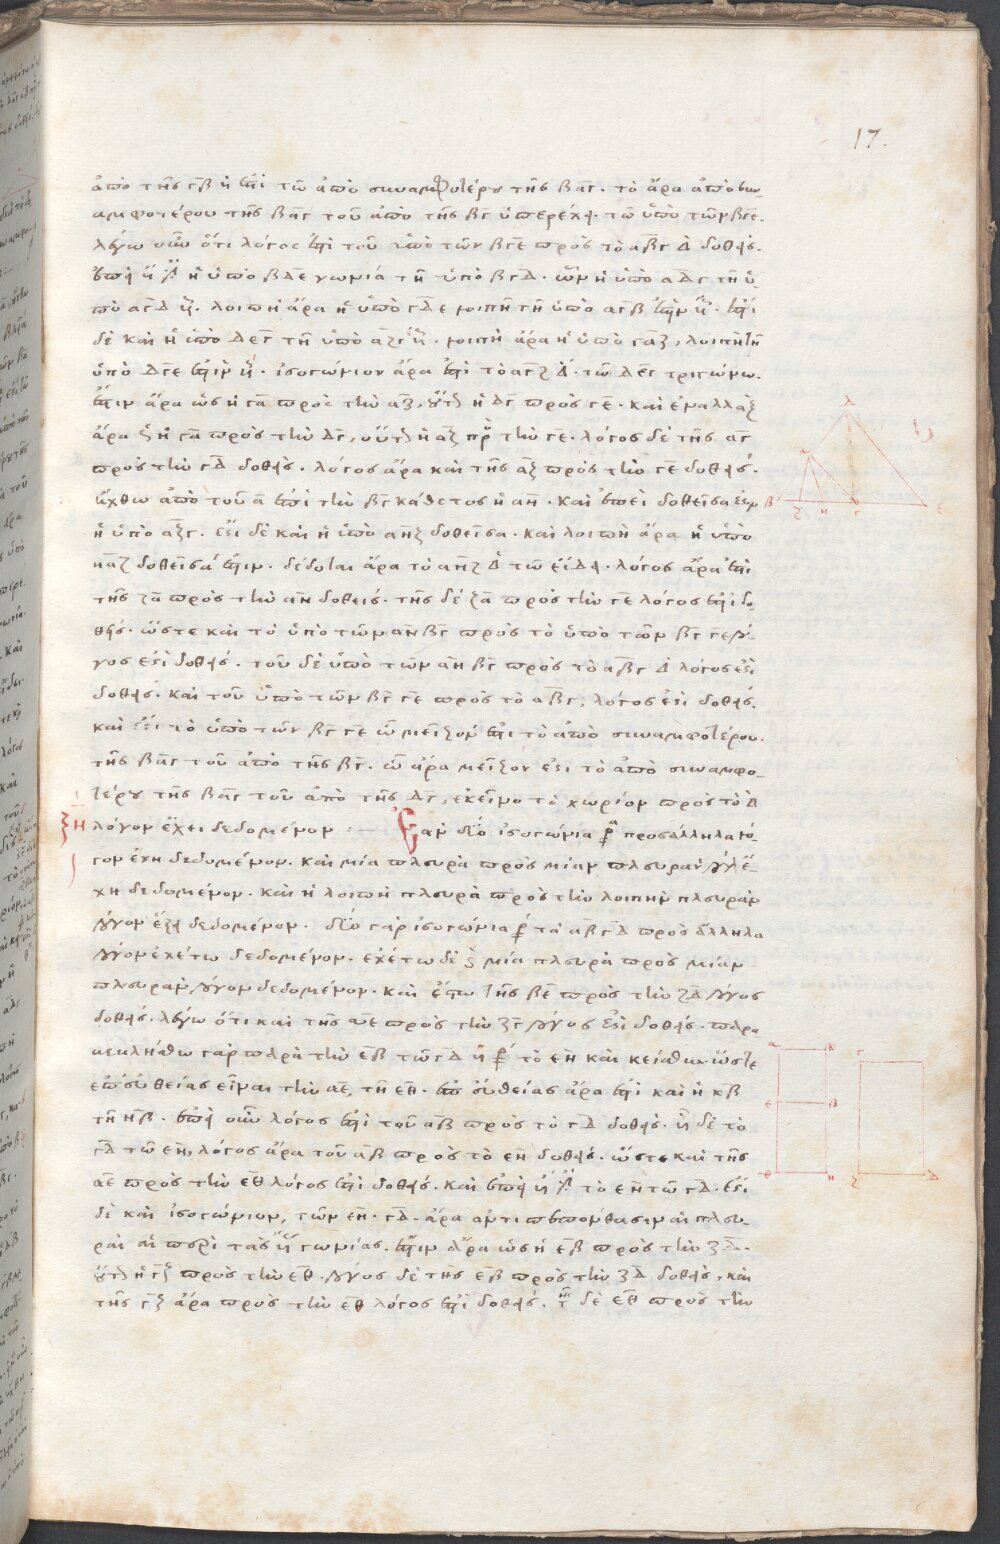 17.
ἀπὸ τῆς γβ ἡ ἐπὶ τῶ ἀπὸ συναμφοτέρου τῆς βαγ. τὸ ἄρα ἀπὸ συν
αμφοτέρου τῆς βαγ τοῦ ἀπὸ τῆς βγ ὑπερέχει. τῶ ὑπὸ τῶν βγε.
λέγω οὖν ὅτι λόγος ἐστὶ τοῦ ὑπὸ τῶν βγε πρὸς τὸ αβγ Δ δοθείς.
ἐπεὶ ἴση ἐστὶν ἡ ὑπὸ βδε γωνία τῆ ὑπὸ βγδ. ὧν ἡ ὑπὸ αδγ τῆ ὑ
πὸ αγδ ἴση. λοιπὴ ἄρα ἡ ὑπὸ γδε λοιπῆ τῆ ὑπὸ αγβ ἐστὶν ἴση. ἐστὶ
δὲ καὶ ἡ ὑπὸ δεγ τῆ ὑπὸ αζγ ἴση. λοιπὴ ἄρα ἡ ὑπὸ γαζ, λοιπῆ τῆ
ὑπὸ δγε ἐστὶν ἴση. ἰσογώνιον ἄρα ἐστὶ τὸ αγζ Δ. τῶ δεγ τριγώνω.
ἔστιν ἄρα ὡς ἡ γα πρὸς τὴν αζ, οὕτως ἡ δγ πρὸς γε. καὶ ἐναλλὰξ
ἄρα ὡς ἡ γα πρὸς τὴν δγ, οὕτως ἡ αζ πρὸς τὴν γε. λόγος δὲ τῆς αγ
πρὸς τὴν γδ δοθείς. λόγος ἄρα καὶ τῆς αζ πρὸς τὴν γε δοθείς.
ἤχθω ἀπὸ τοῦ α ἐπὶ τὴν βγ κάθετος ἡ αη. καὶ ἐπεὶ δοθεῖσα ἐστὶν
ἡ ὑπὸ αζγ. ἐστὶ δὲ καὶ ἡ ὑπὸ αηζ δοθεῖσα. καὶ λοιπὴ ἄρα ἡ ὑπὸ
ηαζ δοθεῖσά ἐστιν. δέδοται ἄρα τὸ αηζ Δ τῶ εἴδει. λόγος ἄρα ἐστὶ
τῆς ζα πρὸς τὴν αη δοθείς. τῆς δὲ ζα πρὸς τὴν γε λόγος ἐστὶ δο
θείς. ὥστε καὶ τὸ ὑπὸ τῶν αη βγ πρὸς τὸ ὑπὸ τῶν βγ γε λό
γος ἐστὶ δοθείς. τοῦ δὲ ὑπὸ τῶν αη βγ πρὸς τὸ αβγ Δ λόγος ἐστὶ
δοθείς. καὶ τοῦ ὑπὸ τῶν βγ γε πρὸς τὸ αβγ, λόγος ἐστὶ δοθείς.
καὶ ἐστὶ τὸ ὑπὸ τῶν βγ γε ὧ μεῖζον ἐστὶ τὸ ἀπὸ συναμφοτέρου.
τῆς βαγ τοῦ ἀπὸ τῆς βγ. ὧ ἄρα μεῖζον ἐστὶ τὸ ἀπὸ συναμφο-
τέρου τῆς βαγ τοῦ ἀπὸ τῆς δγ, ἐκεῖνο τὸ χωρίον πρὸς τὸ Δ
ξη λόγον ἔχει δεδομένον : — Ἐὰν δύο ἰσογώνια πρὸς ἄλληλα λό
γον ἔχη δεδομένον. καὶ μία πλευρὰ πρὸς μίαν πλευρὰν λόγον ἔ-
χη δεδομένον. καὶ ἡ λοιπὴ πλευρὰ πρὸς τὴν λοιπὴν πλευρὰν
λόγον ἕξει δεδομένον. δύο γὰρ ἰσογώνια τὰ αβ γδ πρὸς ἄλληλα
λόγον ἐχέτω δεδομένον. ἐχέτω δὲ καὶ μία πλευρὰ πρὸς μίαν
πλευρὰν λόγον δεδομένον. καὶ ἔστω τῆς βε πρὸς τὴν ζδ λόγος
δοθείς. λέγω ὅτι καὶ τῆς αε πρὸς τὴν ζγ λόγος ἐστὶ δοθείς. παρα
κεκλήσθω γὰρ παρὰ τὴν εβ τῶ γδ ἴσον τὸ εη καὶ κείσθω ὥστε
ἐπ' εὐθείας εἶναι τὴν αε, τῆ εθ. ἐπ' εὐθείας ἄρα ἐστὶ καὶ ἡ κβ
τῆ ηβ. ἐπεὶ οὖν λόγος ἐστὶ τοῦ αβ πρὸς τὸ γδ δοθείς. ἴσον δὲ τὸ
γδ τῶ εη, λόγος ἄρα τοῦ αβ πρὸς τὸ εη δοθείς. ὥστε καὶ τῆς
αε πρὸς τὴν εθ λόγος ἐστὶ δοθείς. καὶ ἐπεὶ ἴσον ἐστὶ τὸ εη τῶ γδ. ἐστὶ
δὲ καὶ ἰσογώνιον, τῶν εη. γδ. ἄρα ἀντιπεπόνθασιν αἱ πλευ-
ραὶ αἱ περὶ τὰς ἴσας γωνίας. ἔστιν ἄρα ὡς ἡ εβ πρὸς τὴν ζδ.
οὕτως ἡ γζ πρὸς τὴν εθ. λόγος δὲ τῆς εβ πρὸς τὴν ζδ δοθείς, καὶ
τῆς γζ ἄρα πρὸς τὴν εθ λόγος ἐστὶ δοθείς. τῆς δὲ εθ πρὸς τὴν